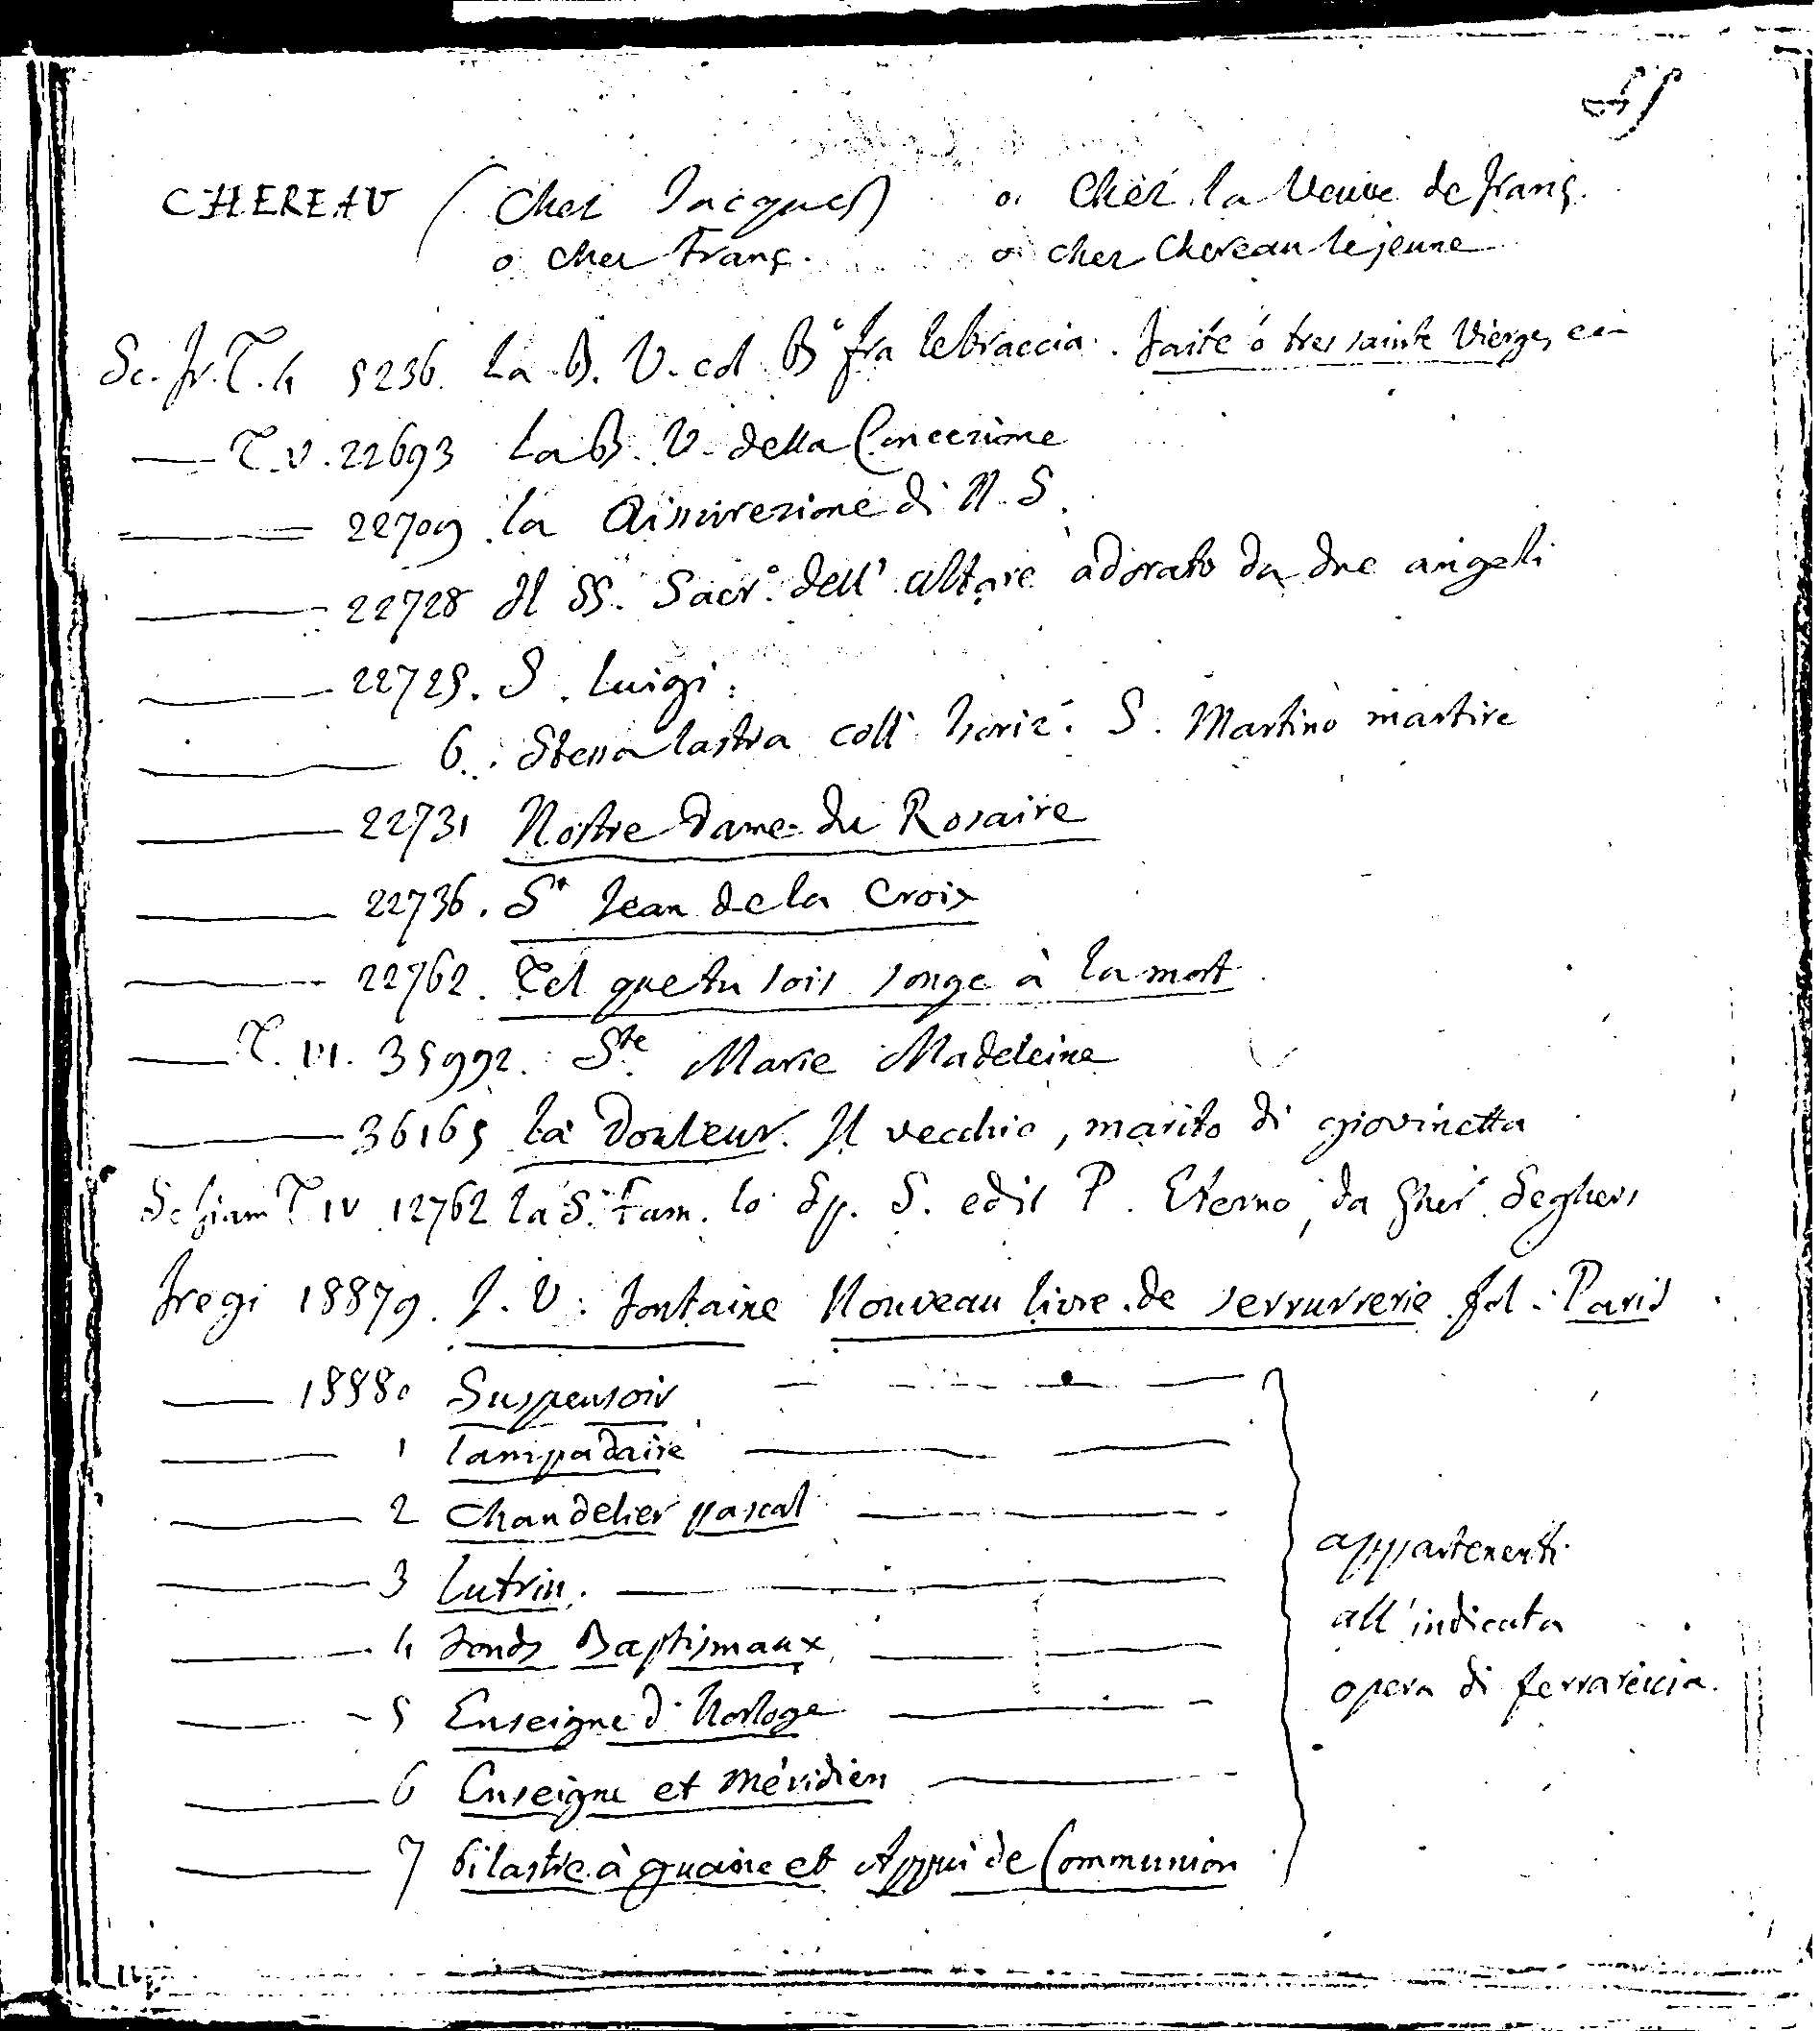 55
CHEREAU (Chez Jacques) o. Chez la Veuve de franç.
o chez Franç. o. chez Chereau le jeune
Sc. fr. T. 4 5236. La B. V. col Bº fra le braccia. faite ô tres sainte Vierge,
— T. V. 22693 La B. V. della Concezione
— 22709 la Risurrezione di N. S.
— 22728 Il SS. Sacr.º dell' altare adorato da due angeli
— 22725. S. Luigi.
— 6. Stessa lastra coll' horiz. S. Martino martire
— 22731 Nostre Dame du Rosaire
— 22736. St Jean de la Croix
— 22762. Tel que tu sois songe à la mort
— T. VI. 35992. Ste Marie Madeleine
— 36165 La Douleur. Il vecchio, marito di giovinetta
Sc fiam T IV 12762 la S. Fam. lo Sp. S. ed il P. Eterno, da Gher. Seghers
fregi 18879. J. V. fontaine Nouveau livre de serrurrerie fol. Paris
— 18880 Suspensoir —
— 1 lampadaire —
— 2 Chandelier pascal —
— 3 Lutrin. —
— 4 fonds Baptismaux —
— 5 Enseigne d'Horloge —
— 6 Enseigne et Méridien —
— 7 Pilastre à guaine et Appui de Communion
appartenenti
all'indicata
opera di ferrareccia.